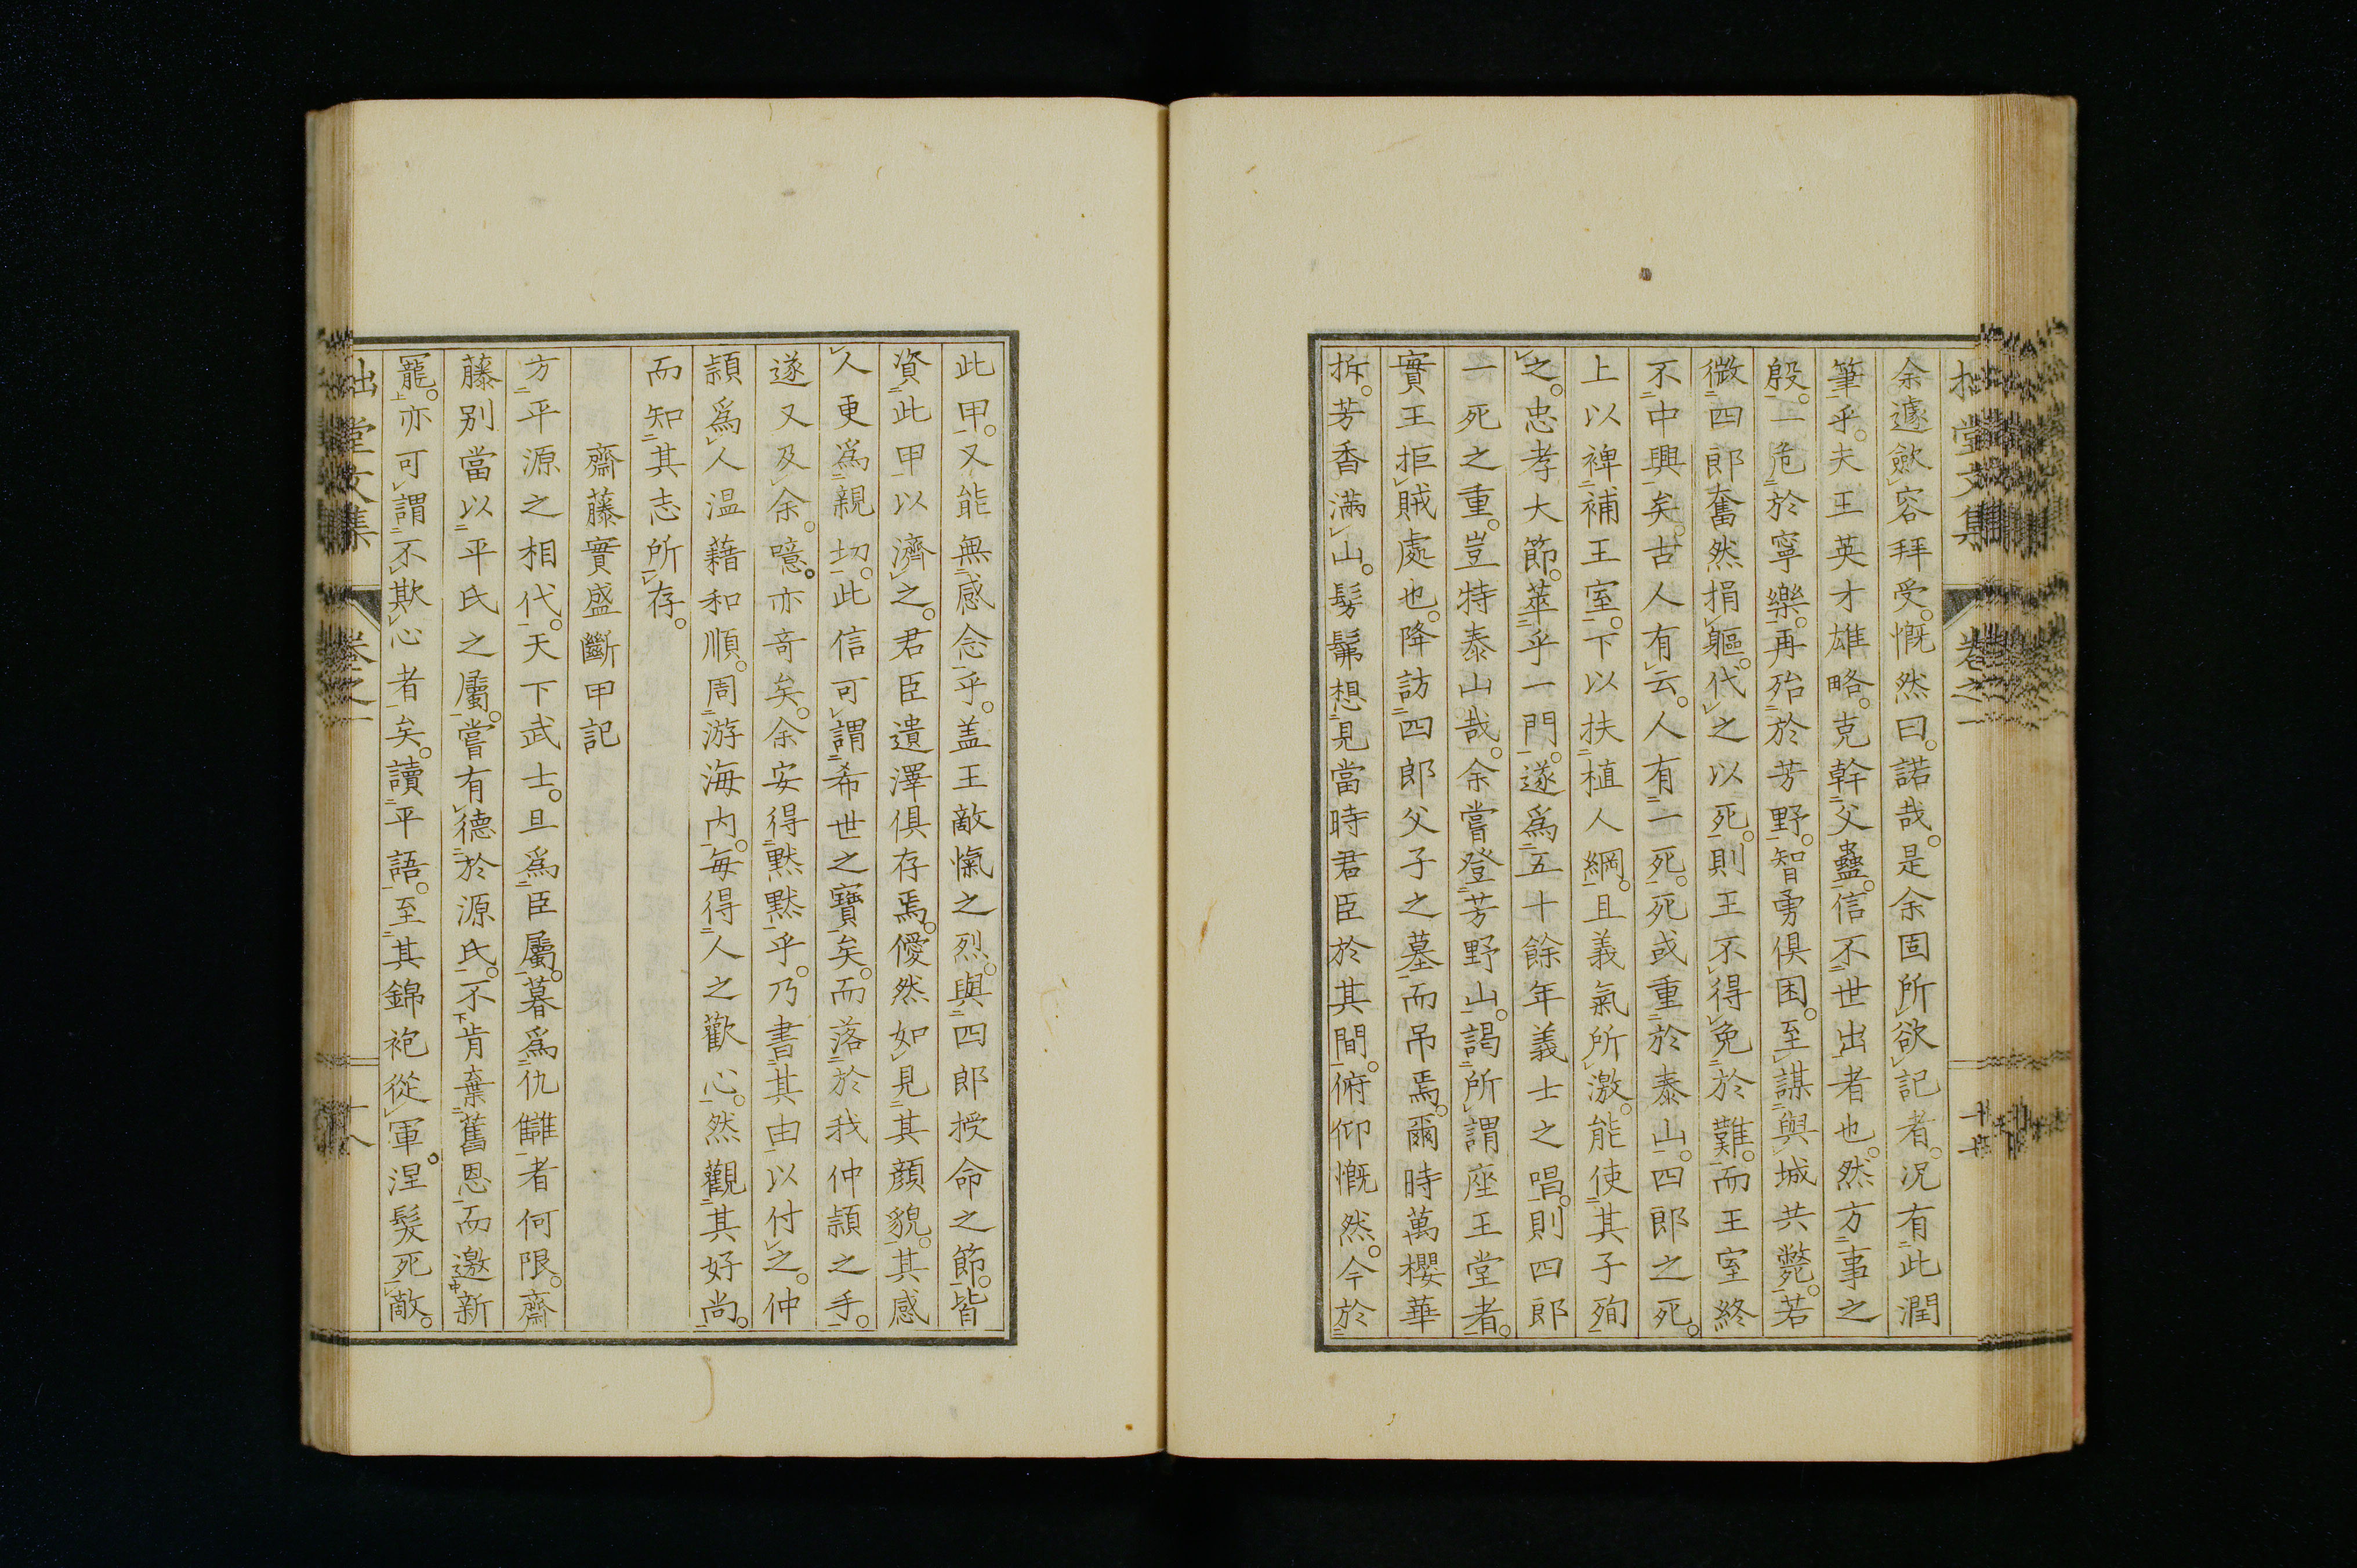 余遽歛容拜受。慨然曰。諾哉。是余固所欲記者。況有此潤
筆乎。夫王英才雄略。克幹父蠱。信不世出者也。然方事之
殷。一危於寧樂。再殆於芳野。智勇俱困。至謀與城共斃。若
微四郎奮然捐軀。代之以死。則王不得免於難。而王室終
不中興矣。古人有云。人有一死。死或重於泰山。四郎之死。
上以裨補王室。下以扶植人綱。且義氣所激。能使其子殉
之。忠孝大節。萃乎一門。遂爲五十餘年義士之唱。則四郎
一死之重。豈特泰山哉。余嘗登芳野山。謁所謂座王堂者。
實王拒賊處也。降訪四郎父子之墓而吊焉。爾時萬櫻華
拆。芳香滿山。髣髴想見當時君臣於其間。俯仰慨然。今於
此甲。又能無感念乎。盖王敵愾之烈。與四郎授命之節。皆
資此甲以濟之。君臣遺澤俱存焉。優然如見其顔貌。其感
人更爲親切。此信可謂希世之寶矣。而落於我仲頴之手。
遂又及余。噫。亦竒矣。余安得默默乎。乃書其由以付之。仲
頴爲人温藉和順。周游海内。毎得人之歡心。然觀其好尚。
而知其志所存。
齋藤實盛斷甲記
方平源之相代。天下武士。旦爲臣屬。暮爲仇讎者何限。齋
藤别當以平氏之屬。嘗有德於源氏。不肯棄舊恩而邀新
寵。亦可謂不欺心者矣。讀平語。至其錦袍從軍。涅髮死敵。
拙堂文集
卷之一
十八